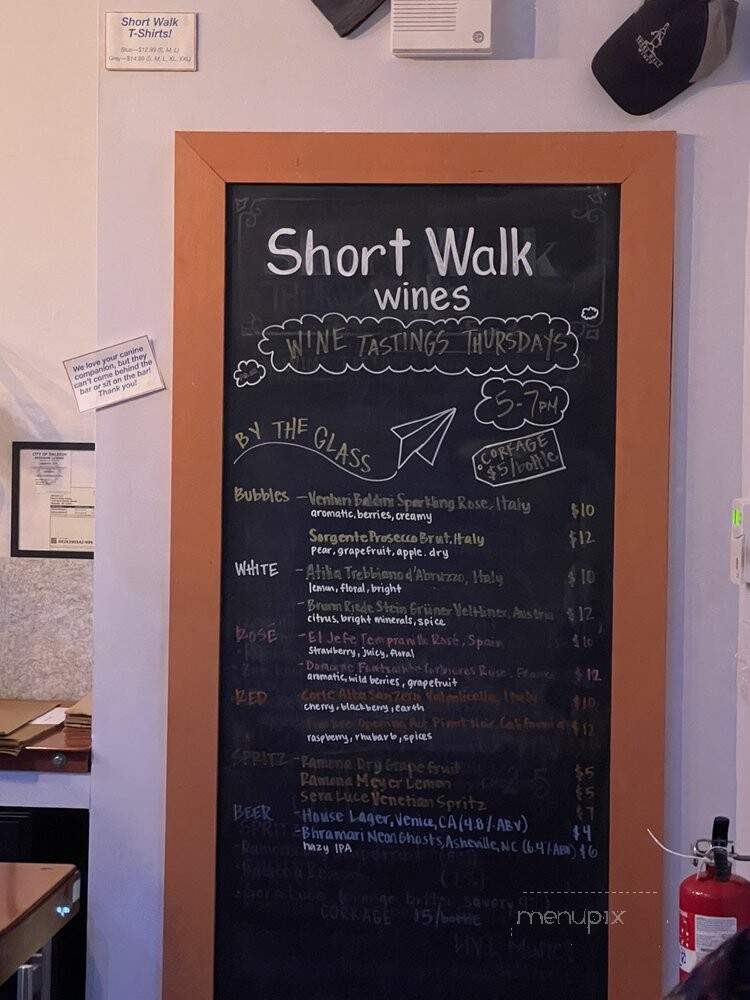 Short Walk
T-Shirts!
Blue—$12.99 (S, M, L)
Grey—$14.99 (S, M, L, XL, XXL)
Short Walk
wines
WINE TASTINGS THURSDAYS
5-7PM
BY THE GLASS
CORKAGE
$5/bottle
We love your canine
companion, but they
can't come behind the
bar or sit on the bar!
Thank you!
CITY OF RALEIGH
Bubbles - Venturi Baldini Sparkling Rose, Italy $10
aromatic, berries, creamy
Sorgente Prosecco Brut, Italy $12
pear, grapefruit, apple, dry
WHITE - Atilia Trebbiano d'Abruzzo, Italy $10
lemon, floral, bright
- Brunn Riede Stein Grüner Veltliner, Austria $12
citrus, bright minerals, spice
ROSÉ - El Jefe Tempranillo Rosé, Spain $10
strawberry, juicy, floral
- Domaine Corbieres Rose, France $12
aromatic, wild berries, grapefruit
RED Corte Alta San Zeno Valpolicella, Italy $10
cherry, blackberry, earth
Pinot Noir California $12
raspberry, rhubarb, spices
SPRITZ - Ramona Dry Grapefruit $5
Ramona Meyer Lemon $5
Sera Luce Venetian Spritz $7
BEER - House Lager, Venice, CA (4.8% ABV) $4
- Bhramari Neon Ghosts, Asheville, NC (6.4% ABV) $6
hazy IPA
CORKAGE 15/bottle
menupix